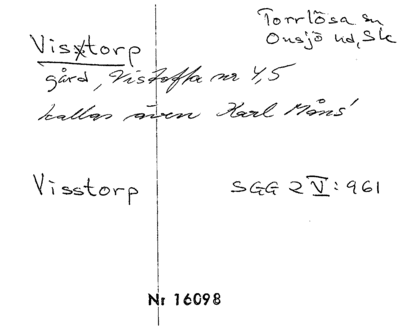 Torrlösa sn
Onsjö hd, Sk
Vistorp
gård, Vistofta nr 4,5
kallas även Karl Måns'
Visstorp SGG 2 V: 961
Nr 16098